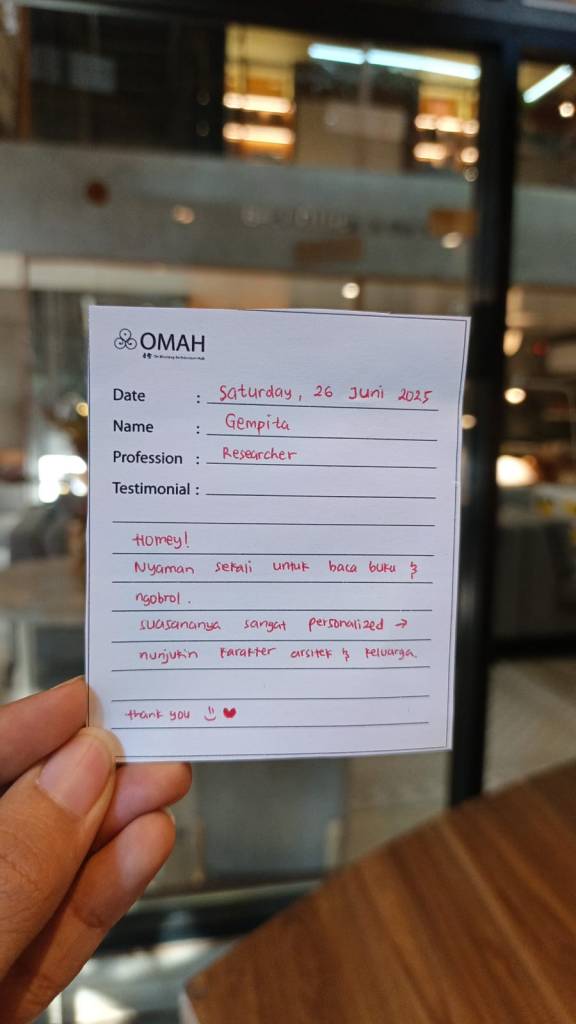 OMAH
Date : Saturday, 26 Juni 2025
Name : Gempita
Profession : Researcher
Testimonial :
Homey!
Nyaman sekali untuk baca buku &
ngobrol.
suasananya sangat personalized →
nunjukin karakter arsitek & keluarga.
thank you